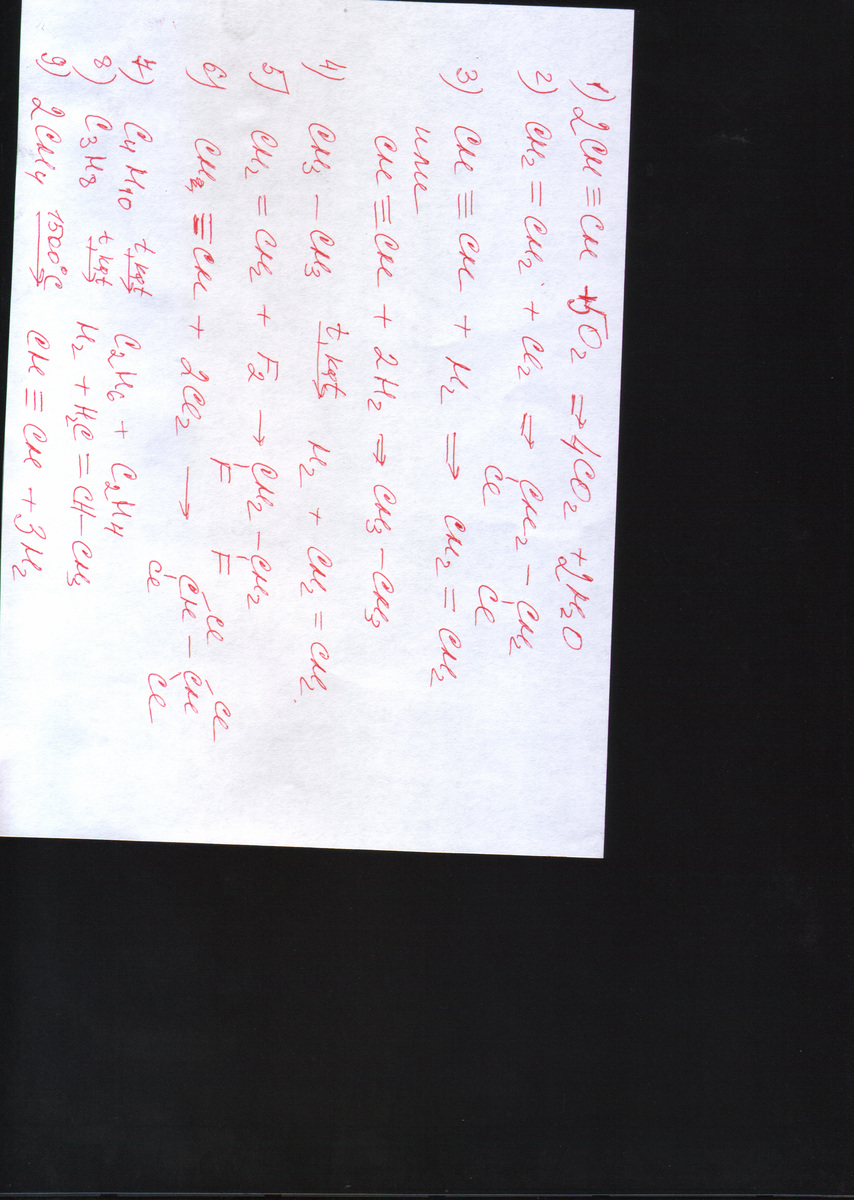 1) 2CH≡CH + 5O2 ⇒ 4CO2 + 2H2O
2) CH2 = CH2 + Cl2 ⇒ CH2 – CH2
Cl Cl
3) CH ≡ CH + H2 ⇒ CH2 = CH2
или
CH ≡ CH + 2H2 ⇒ CH3 – CH3
4) CH3 – CH3 t, kat → H2 + CH2 = CH2.
5) CH2 = CH2 + F2 → CH2 – CH2
F F
Cl Cl
6) CH ≡ CH + 2Cl2 → CH – CH
Cl Cl
7) C4H10 t, kat → C2H6 + C2H4
8) C3H8 t, kat → H2 + H2C = CH – CH3
9) 2CH4 1500°C → CH ≡ CH + 3H2